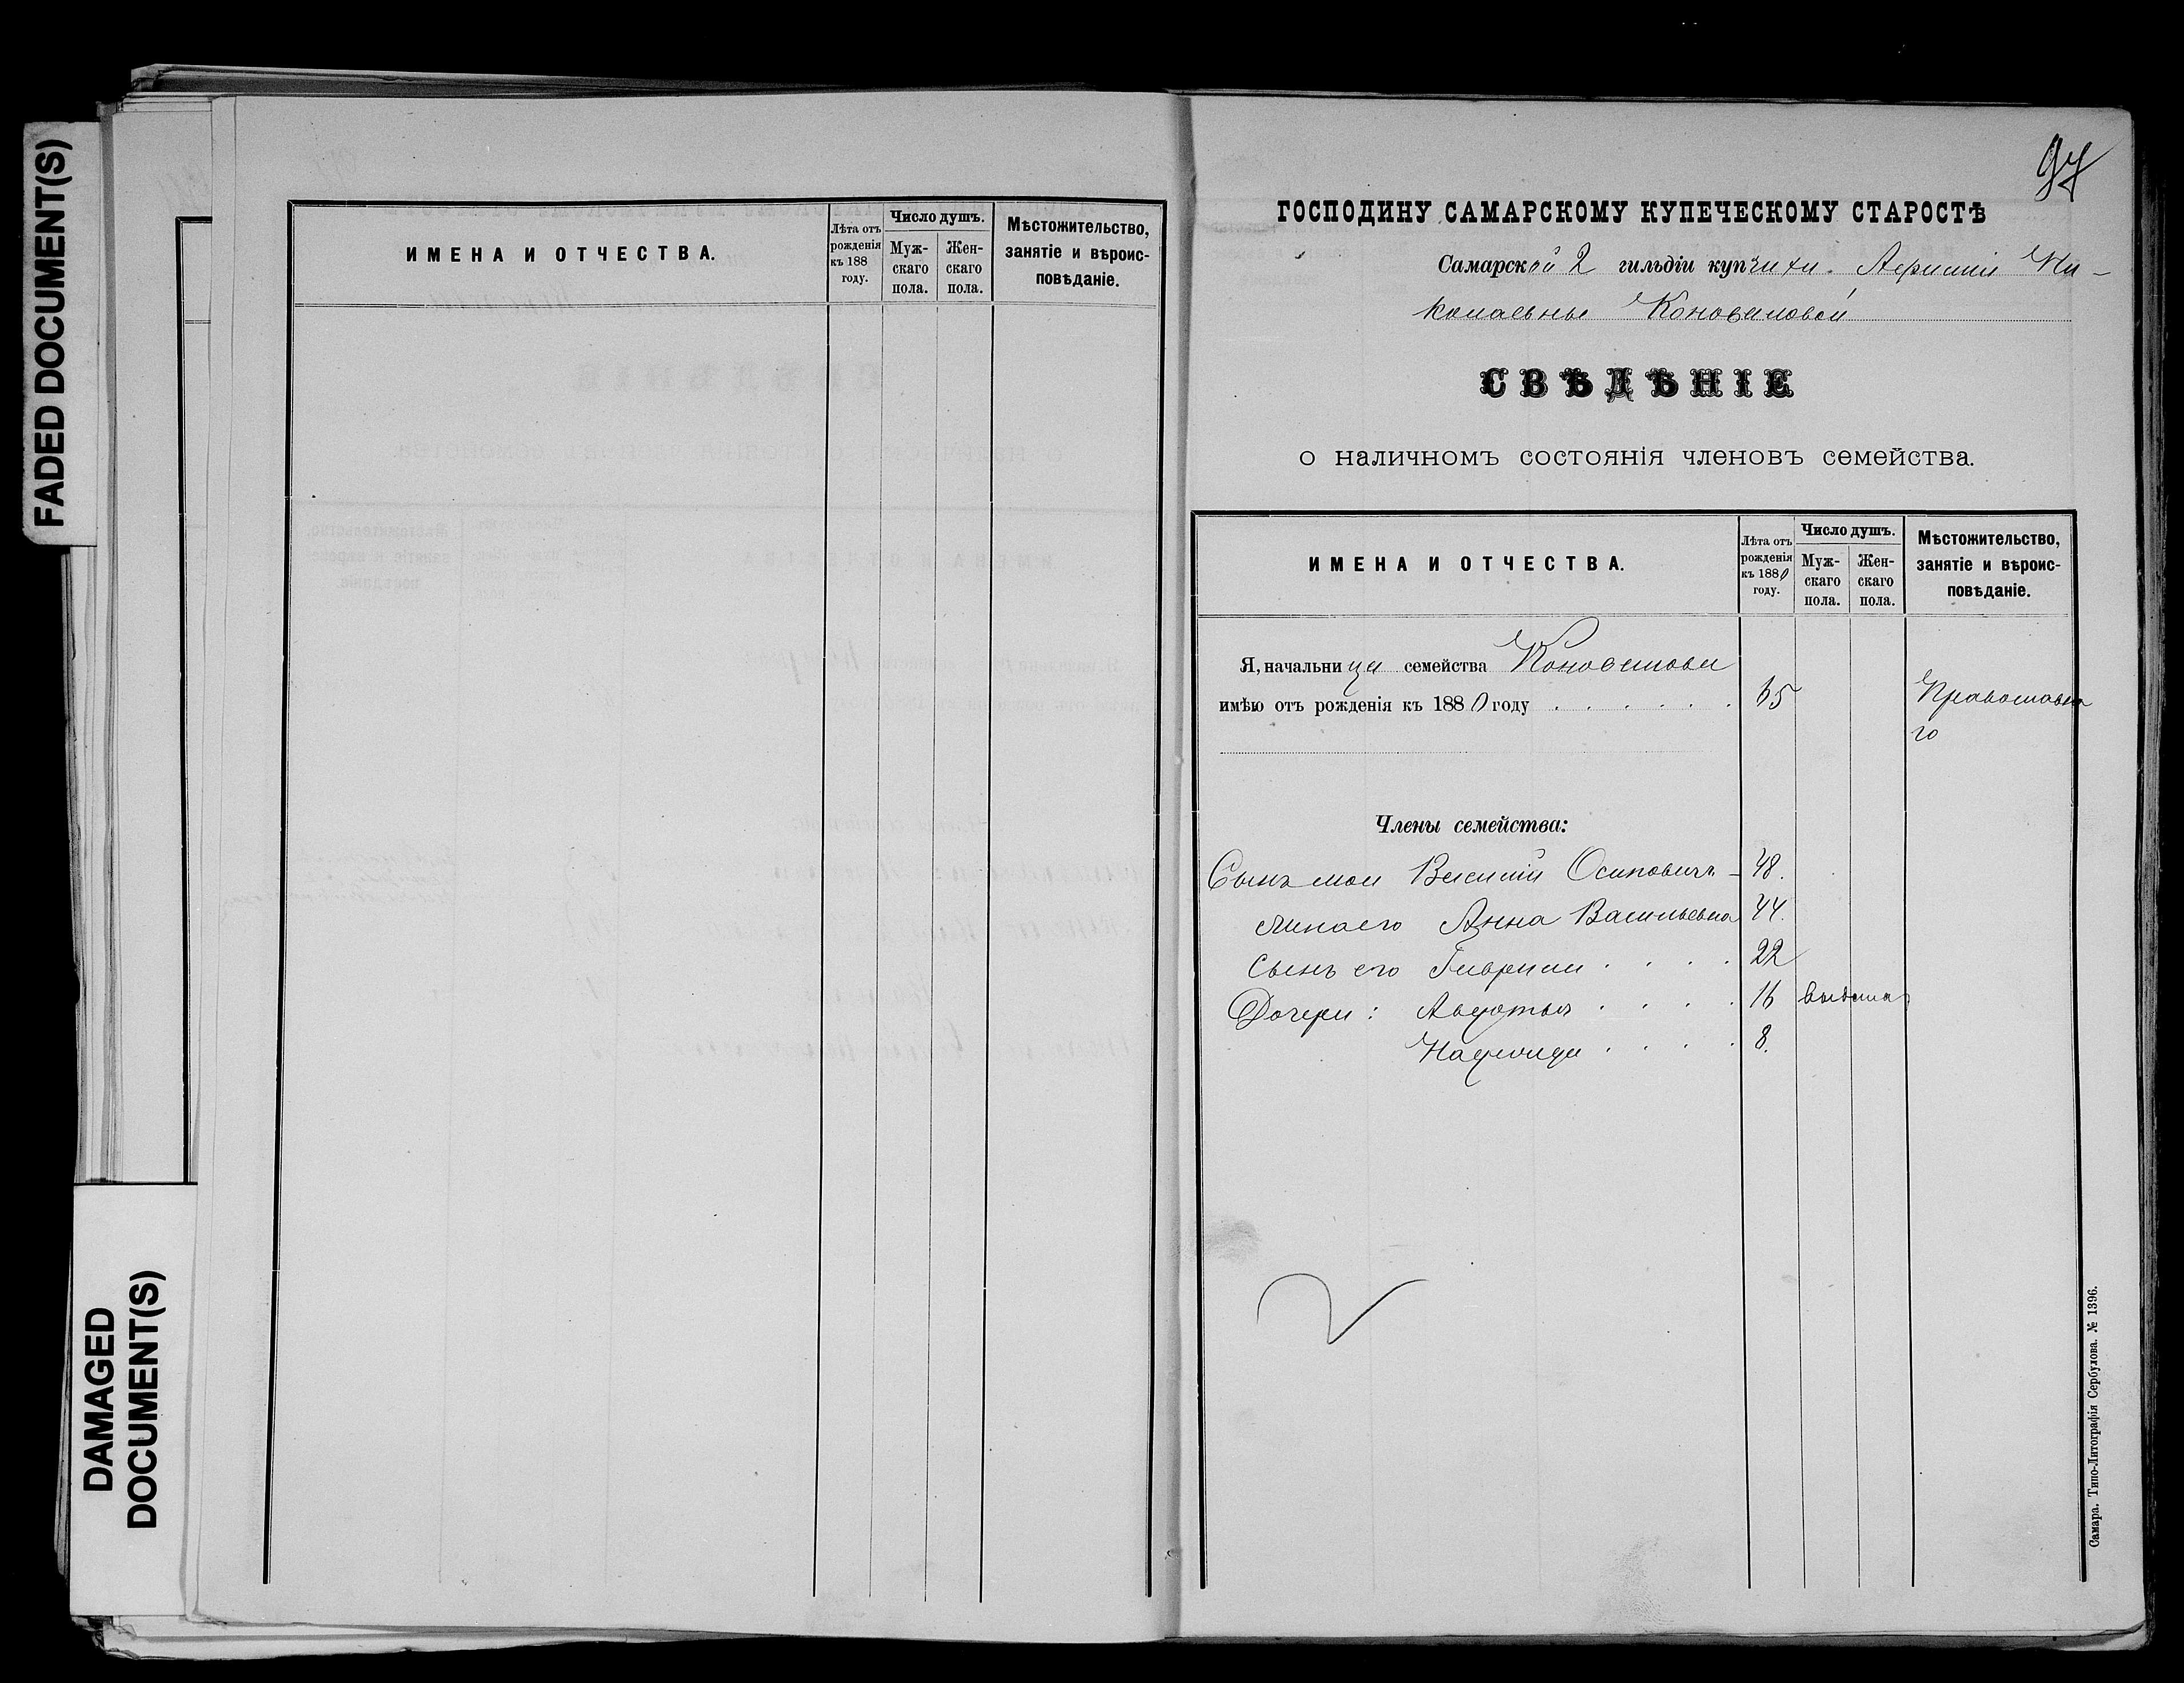 FADED DOCUMENT(S)
DAMAGED
DOCUMENT(S)
ИМЕНА И ОТЧЕСТВА.
Лѣта отъ
рожденія
къ 188
году.
Число душъ.
Муж-
скаго
пола.
Жен-
скаго
пола.
Мѣстожительство,
занятіе и вѣроис-
повѣданіе.
97
ГОСПОДИНУ САМАРСКОМУ КУПЕЧЕСКОМУ СТАРОСТѢ
Самарской 2 гильдіи купчихи Ни-
колаевны Коноваловой
СВѢДѢНІЕ
о наличномъ состоянія членовъ семейства.
ИМЕНА И ОТЧЕСТВА.
Лѣта отъ
рожденія
къ 1880
году.
Число душъ.
Муж-
скаго
пола.
Жен-
скаго
пола.
Мѣстожительство,
занятіе и вѣроис-
повѣданіе.
Я, начальница семейства Коновалова
имѣю отъ рожденія къ 1880 году . . . . . . 65 Православна
го
Члены семейства:
Сынъ мой Василій Осиповичъ - 48.
жена его Анна Васильевна 44.
Сынъ его Гавріилъ . . . . 22
Дочери: Авдотья . . . . 16
Надежда . . . . 8.
Самара. Типо-Литографія Сербулова. № 1396.